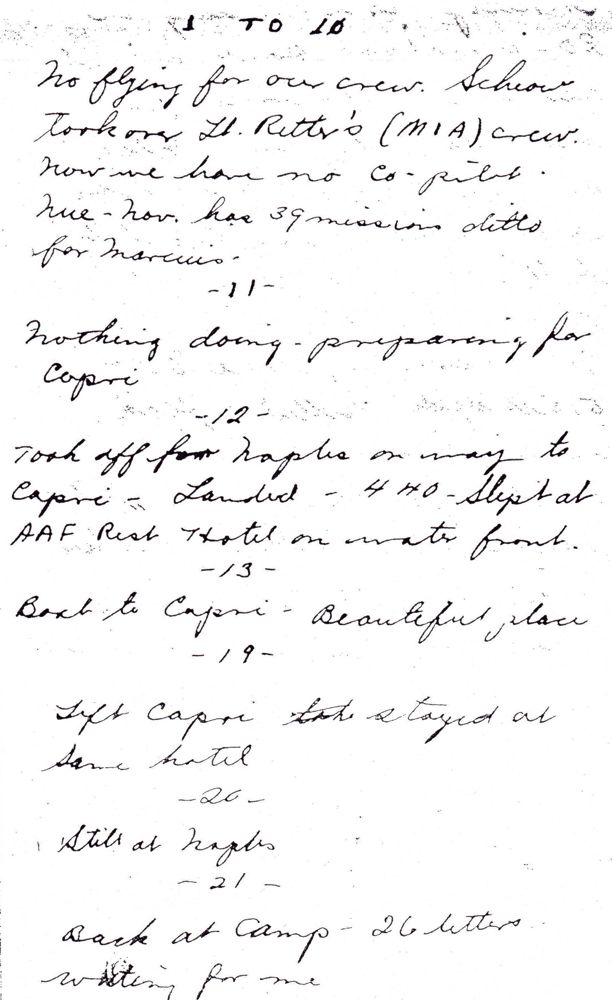 1 TO 10
No flying for our crew. Schow
took over Lt. Retter's (MIA) crew.
Now we have no co-pilot.
Nov. has 39 missions ditto
for Marcuis.
-11-
Nothing doing - preparing for
Capri
-12-
Took off for Naples on way to
Capri - Landed - 440 - Slept at
AAF Rest Hotel on water front.
-13-
Boat to Capri - Beautiful place
-19-
Left Capri stayed at
same hotel
-20-
Still at Naples
-21-
Back at Camp - 26 letters
waiting for me